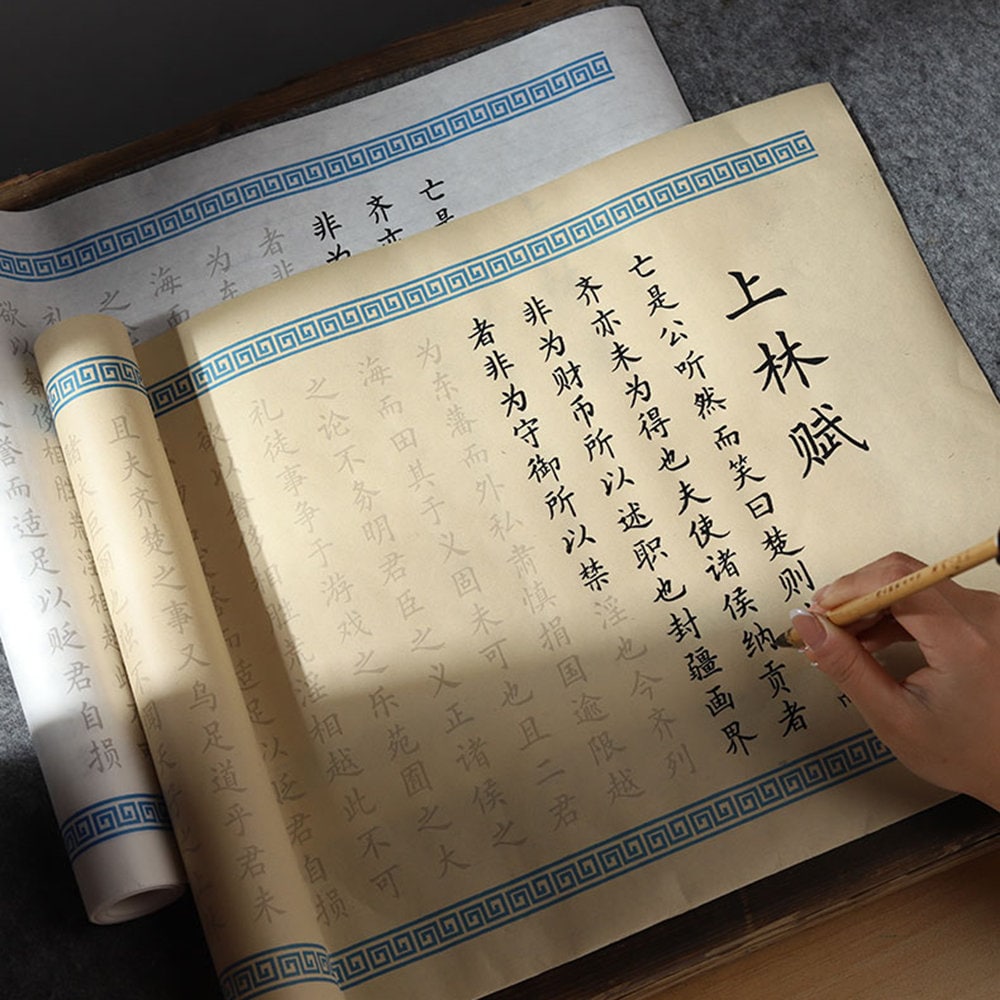 上林赋
亡是公听然而笑曰楚则
齐亦未为得也夫使诸侯纳贡者
非为财币所以述职也封疆画界
者非为守御所以禁淫也今齐列
为东藩而外私肃慎捐国逾限越
海而田其于义固未可也且二君
之论不务明君臣之义正诸侯之
礼徒事争于游戏之乐苑囿之大
欲以奢侈相胜荒淫相越此不可
而适足以贬君自损
且夫齐楚之事又乌足道乎君未
亡是
齐亦
非为
者非
为东
海而
之
礼
欲以奢侈相胜荒淫相越此
誉而适足以贬君自损